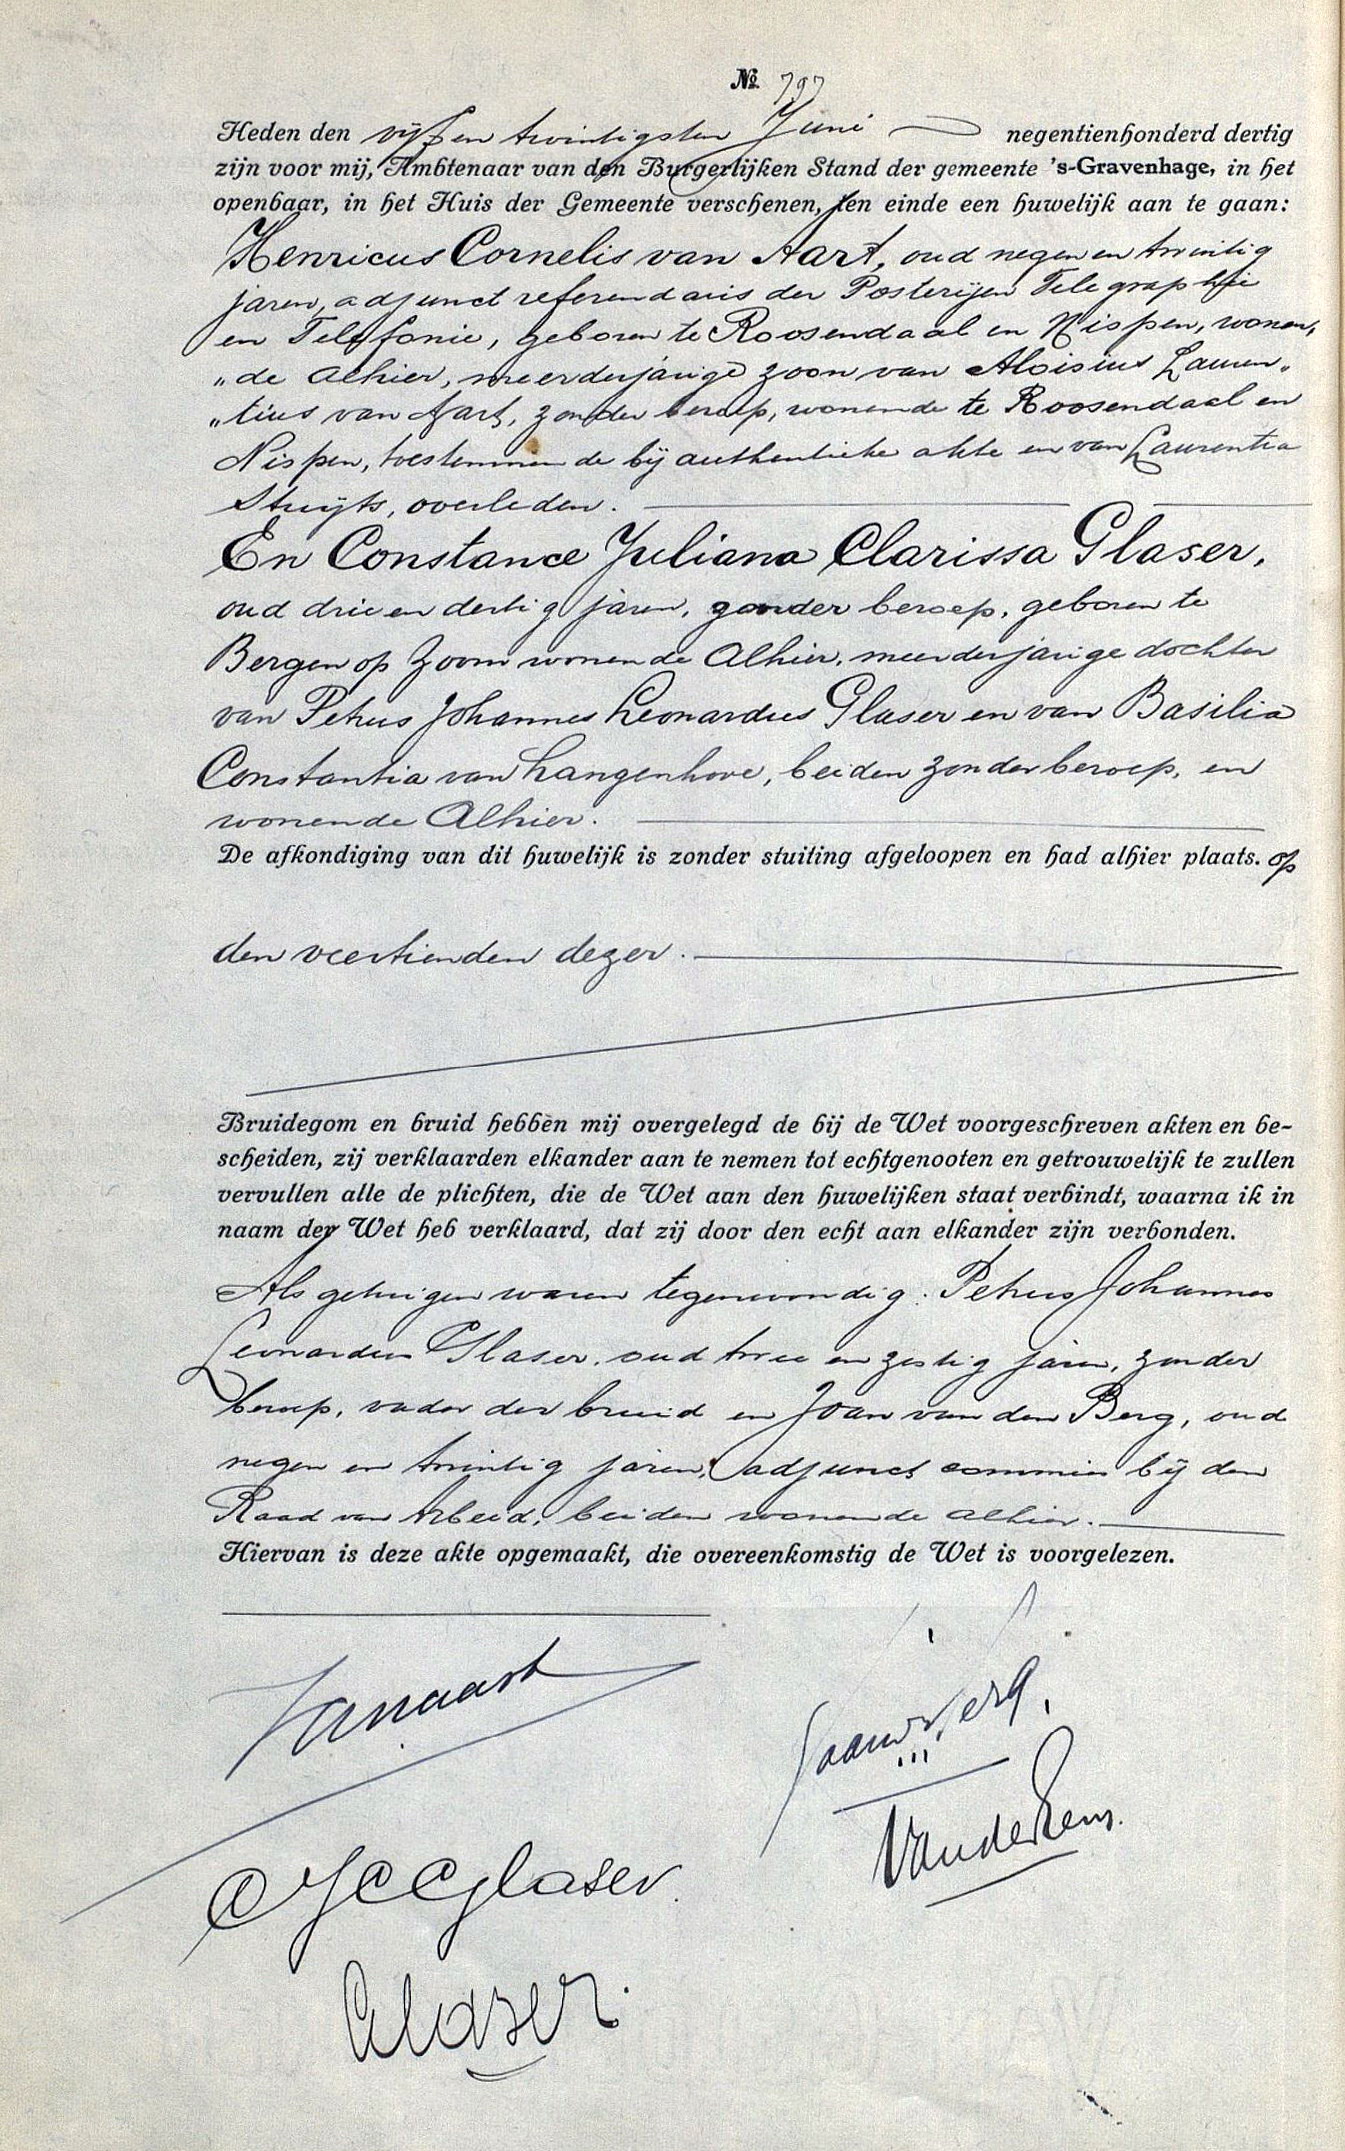 № 797
Heden den vijf en twintigsten Juni negentienhonderd dertig
zijn voor mij, Ambtenaar van den Burgerlijken Stand der gemeente 's-Gravenhage, in het
openbaar, in het Huis der Gemeente verschenen, ten einde een huwelijk aan te gaan:
Henricus Cornelis van Aart, oud negen en twintig
jaren, adjunct referendaris der Posterijen Telegraphie
en Telefonie, geboren te Roosendaal en Nispen, wonen„
„de alhier, meerderjarige zoon van Aloisius Lauren„
„tius van Aart, zonder beroep, wonende te Roosendaal en
Nispen, toestemmende bij authentieke akte en van Laurentia
Stuijts, overleden.
En Constance Juliana Clarissa Glaser,
oud drie en dertig jaren, zonder beroep, geboren te
Bergen op Zoom wonende alhier, meerderjarige dochter
van Petrus Johannes Leonardus Glaser en van Basilia
Constantia van Langenhove, beiden zonder beroep, en
wonende alhier.
De afkondiging van dit huwelijk is zonder stuiting afgeloopen en had alhier plaats. op
den veertienden dezer.
Bruidegom en bruid hebben mij overgelegd de bij de Wet voorgeschreven akten en be-
scheiden, zij verklaarden elkander aan te nemen tot echtgenooten en getrouwelijk te zullen
vervullen alle de plichten, die de Wet aan den huwelijken staat verbindt, waarna ik in
naam der Wet heb verklaard, dat zij door den echt aan elkander zijn verbonden.
Als getuigen waren tegenwoordig: Petrus Johannes
Leonardus Glaser, oud twee en zestig jaren, zonder
beroep, vader der bruid en Joan van den Berg, oud
negen en twintig jaren, adjunct commies bij den
Raad van Arbeid, beiden wonende alhier.
Hiervan is deze akte opgemaakt, die overeenkomstig de Wet is voorgelezen.
Vanaart
CJCGlaser.
Glaser.